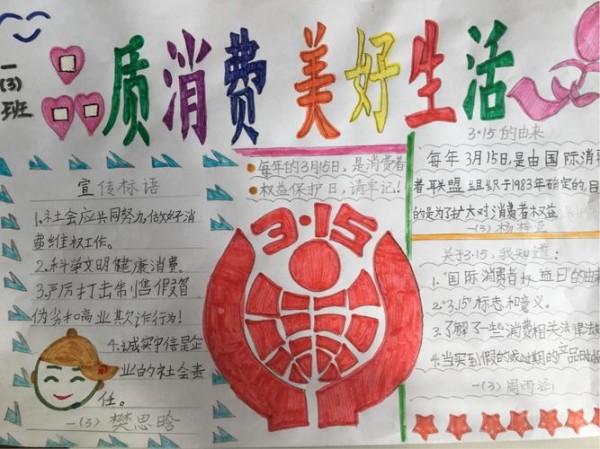 一
(3)
班
品质消费 美好生活
宣传标语
1.社会应共同努力,做好消
费维权工作。
2.科学文明健康消费.
3.严厉打击制售假冒
伪劣和商业欺诈行为!
4.诚实守信是企
业的社会责
任。
一(3) 樊思晗
每年的3月15日,是消费者
权益保护日,请牢记!
3·15
3·15的由来
每年3月15日,是由国际消
者联盟组织于1983年确定的,目
的是为了扩大对消费者权益
一(3)
关于3.15,我知道:
1."国际消费者权益日的由来
2."3.15"标志和意义。
3.了解了一些消费相关法律法
4.当买到假的或过期的产品时
一(3) 周雨涵